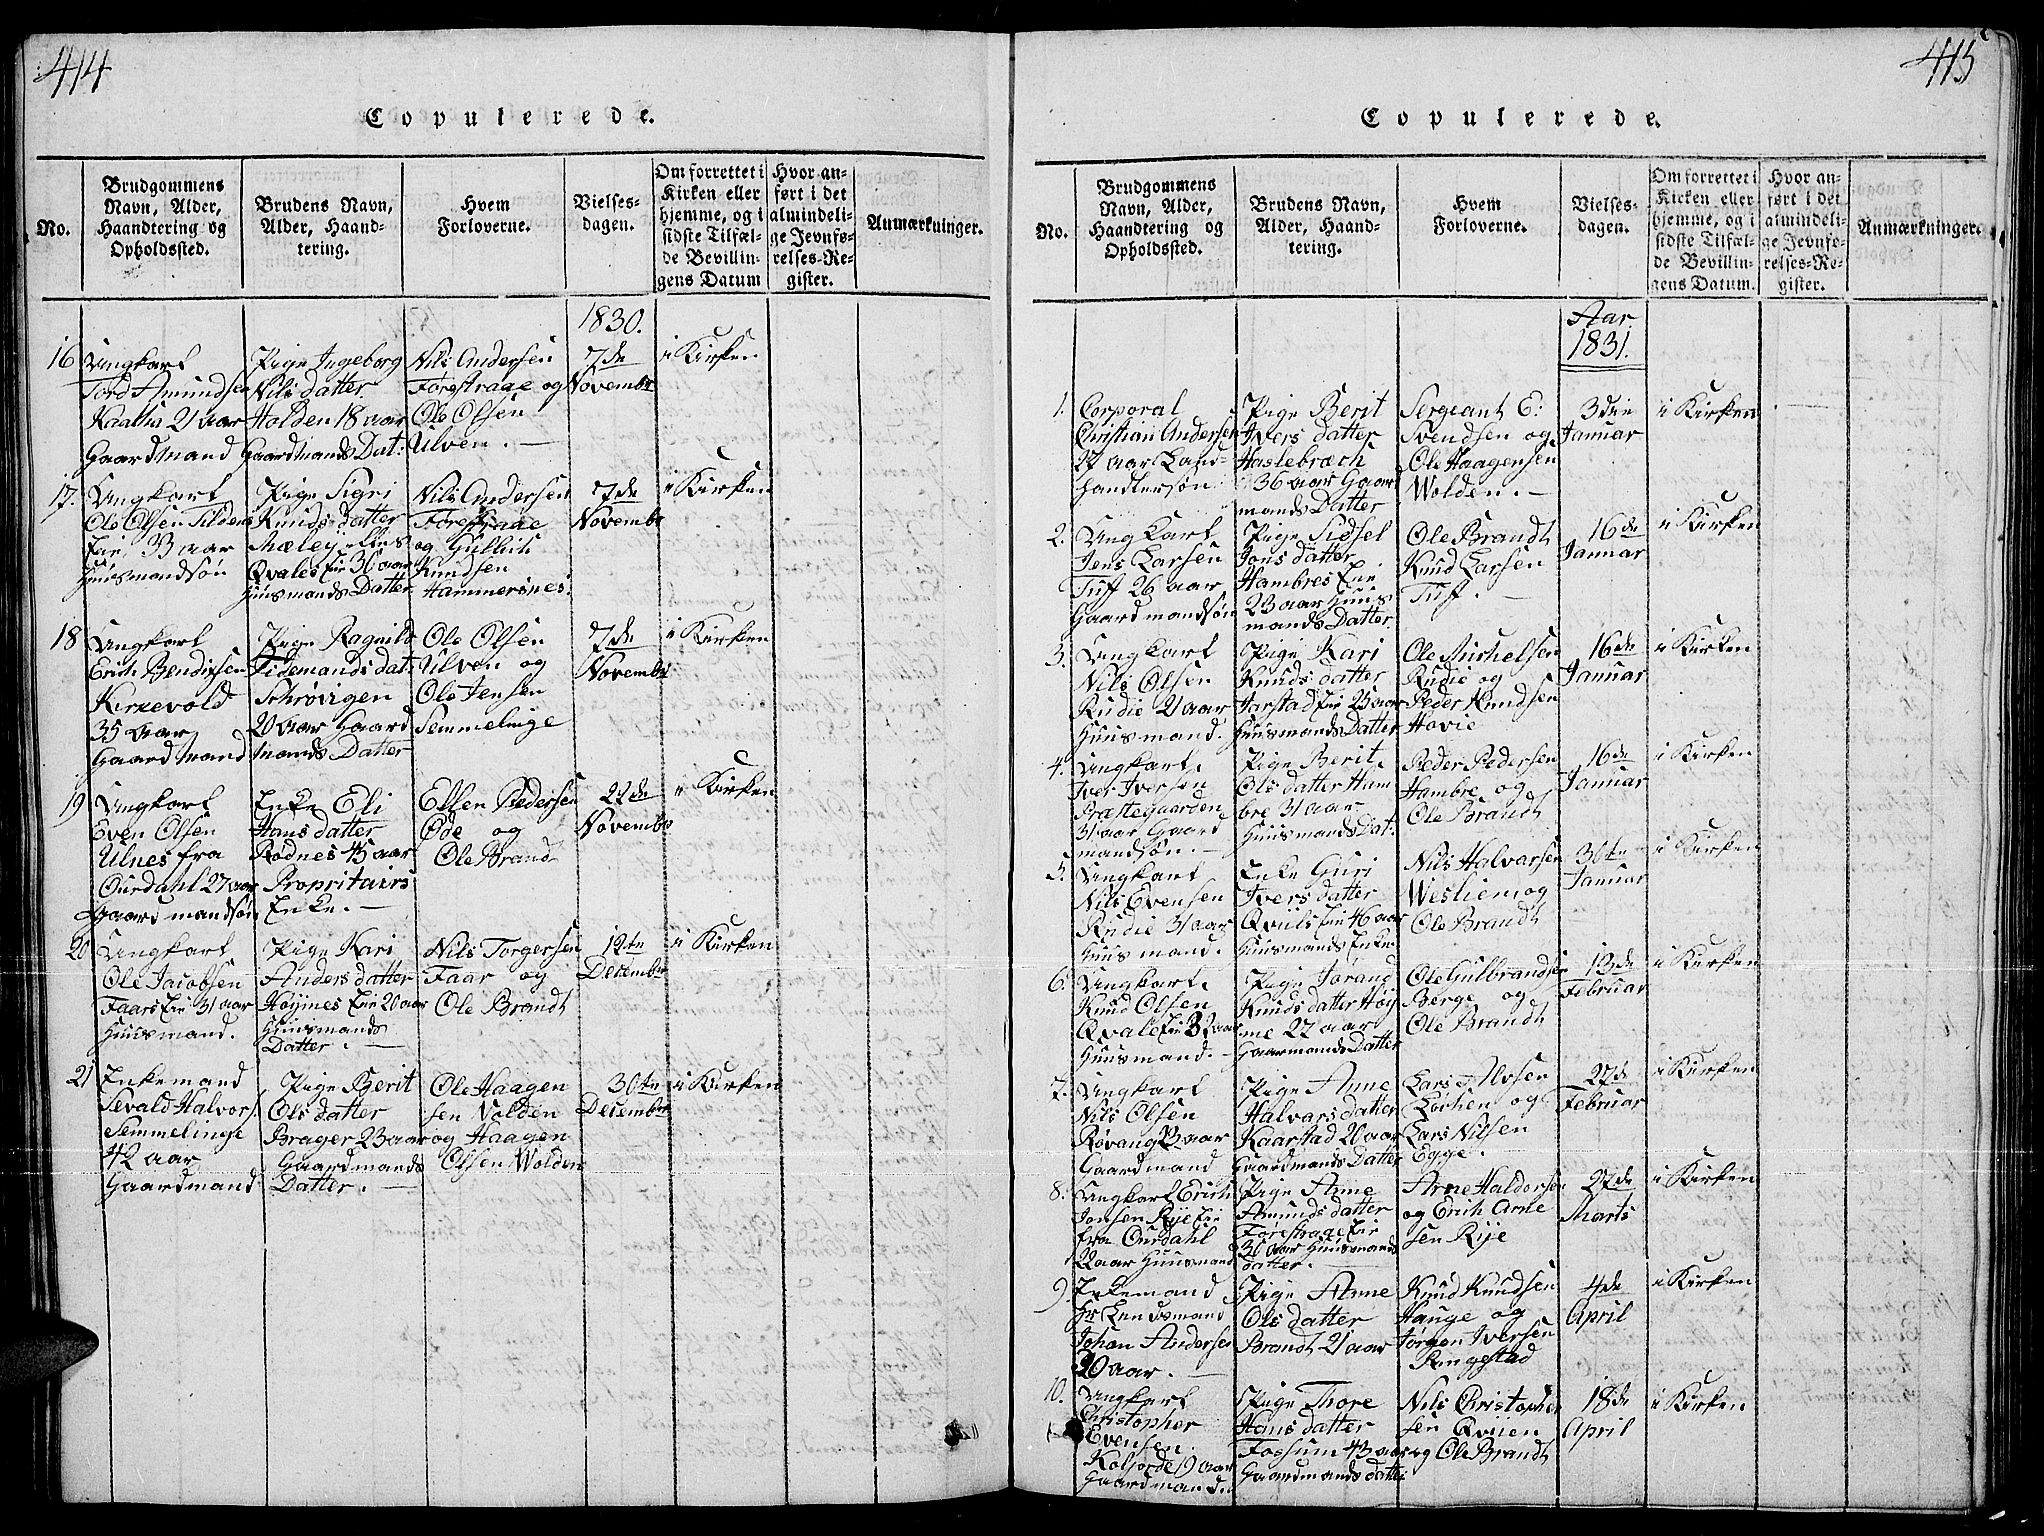 414
Copulerede.
No.
Brudgommens
Navn, Alder,
Haandtering og
Opholdssted.
Brudens Navn,
Alder, Haand-
tering.
Hvem
Forloverne.
Vielses-
dagen.
Om forrettet i
Kirken eller
hjemme, og i
sidste Tilfæl-
de Bevillin-
gens Datum
Hvor an-
ført i det
almindeli-
ge Jevnfø-
relses-Re-
gister.
Anmærkninger.
1830.
16
Ungkarl
Tord Amundsen
21 aar
Gaardmand
Pige Ingeborg
Nils datter
Holden 18 aar
Gaardmands Dat:
Nils Andersen
Førestraae og
Ole Olsen
Ulven.
7de
November
i Kirken
17.
Ungkarl
Ole Olsen Tildens
Eie, 33 aar
Huusmandsøn
Pige Sigri
Knuds datter
Qvales Eie 36 aar
Huusmands Datter
Nils Andersen
Førestraae
og Gullik
Knudsen
Hammersnes.
7de
November
i Kirken
18
Ungkarl
Erich Bendixsen
Kirkevold
35 Aar
Gaardmand
Pige Ragnild
Tidemands dat:
Schrøvigen
20 Aar Gaard
mands Datter
Ole Olsen
Ulven og
Ole Jensen
Semmelinge
7de
November
i Kirken
19
Ungkarl
Even Olsen
Ulnes fra
Ourdahl 27 aar
Gaardmandsøn
Enke Eli
Hans datter
Rødnes 45 aar
Propritairs
Enke.
Ellen Pedersen
Øde og
Ole Brand
22de
November
i Kirken
20
Ungkarl
Ole Jacobsen
Faars Eie 31 aar
Huusmand.
Pige Kari
Anders datter
Høyines Eie 20 aar
Huusmands
Datter.
Nils Torgersen
Faar og
Ole Brandt
12te
December
i Kirken
21
Enkemand
Sevald Halvors.
Semmelinge
42 aar
Gaardmand
Pige Berit
Ols datter
Brager 23 aar
Gaardmands
Datter.
Ole Haagen
sen Volden
og Haagen
Olsen Wolden
30te
December
i Kirken
415
Copulerede.
No.
Brudgommens
Navn, Alder,
Haandtering og
Opholdssted.
Brudens Navn,
Alder, Haand-
tering.
Hvem
Forloverne.
Vielses-
dagen.
Om forrettet i
Kirken eller
hjemme, og i
sidste Tilfæl-
de Bevillin-
gens Datum.
Hvor an-
ført i det
almindeli-
ge Jevnfø-
relses-Re-
gister.
Anmærkninger.
Aar
1831.
1.
Corporal
Christian Andersen
27 aar Land-
handlersøn
Pige Berit
Ivers datter
Haslebræch
36 aar Gaar
mands Datter
Sergeant E:
Svendsen og
Ole Haagensen
Wolden.
3die
Januar
i Kirken
2.
Ungkarl
Jens Larsen
Tuff 26 aar
Gaardmandsøn
Pige Sidsel
Jons datter
Hambres Eie
23 aar Huus
mands Datter.
Ole Brandt
Knud Larsen
Tuf.
16de
Januar
i Kirken
3.
Ungkarl
Nils Olsen
Rudie 21 aar
Huusmand.
Pige Kari
Knuds datter
Jarstad Eie 23 aar
Huusmands Datter
Ole Michelsen
Rudie og
Peder Knudsen
Hovie
16de
Januar
i Kirken
4.
Ungkarl
Iver Iversen
Præstegaarden
31 aar Gaard
mandsøn.
Pige Berit
Ols datter Ham
bre 31 aar
Huusmands Dat.
Peder Pedersen
Hambre og
Ole Brandt
16de
Januar
i Kirken
5.
Ungkarl
Nils Evensen
Rudie 31 aar
Huusmand.
Enke Guri
Ivers datter
Eie 46 aar
Huusmands Enke
Nils Halvarsen
Westlien og
Ole Brandt
30te
Januar
i Kirken
6.
Ungkarl
Knud Olsen
Qvale Eie 32 aar
Huusmand.
Pige Jørand
Knuds datter Høy
ne 22 aar
Gaarmands Datter
Ole Gulbrandsen
Berge og
Ole Brandt
13de
Februar
i Kirken
7.
Ungkarl
Nils Olsen
Røvang 23 aar
Gaardmand
Pige Anne
Halvars datter
Kaarstad 20 aar
Gaardmands Datter
Lars Alvsen
Lørhen og
Lars Nilsen
Egge.
27de
Februar
i Kirken
8.
Ungkarl Erich
Jonsen Rye Eie
fra Ourdahl
22 aar Huusmand
Pige Anne
Amunds datter
Førestraae Eie
30 aar Huusmands
datter.
Arne Haldorsen
og Erich Arne
sen Rye
27de
Marts
i Kirken
9.
Enkemand
Hr Lendsmand
Johan Andersen
30 aar.
Pige Anne
Ols datter
Brandt 21 aar
Knud Knudsen
Hauge og
Jørgen Iversen
Ringestad
4de
April
i Kirken
10.
Ungkarl
Christopher
Evensen
Gaardmand.
Pige Thore
Hans datter
Fossum 43 aar
Gaardmands datter
Nils Christopher
sen Qviien
og Ole Brandt
18de
April
i Kirken